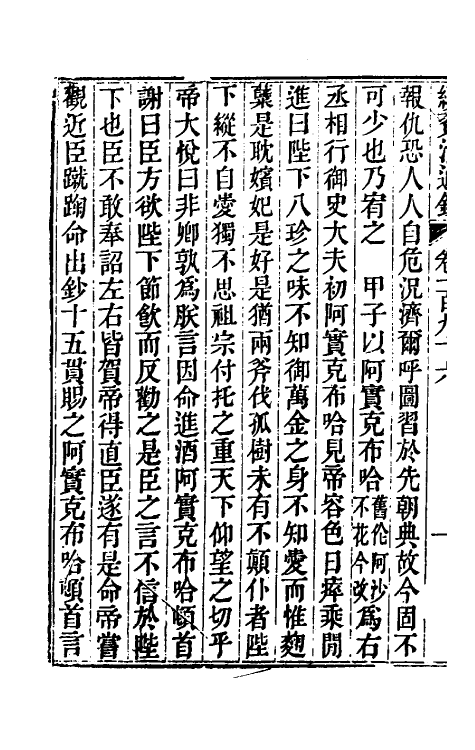 續資治通鑑 卷二百九十六 一
報仇恐人人自危況濟爾呼圖習於先朝典故今固不
可少也乃宥之　甲子以阿實克布哈舊倫阿沙不花今改為右
丞相行御史大夫初阿實克布哈見帝容色日瘁乘閒
進曰陛下八珍之味不知御萬金之身不知愛而惟麴
櫱是耽嬪妃是好是猶兩斧伐孤樹未有不顛仆者陛
下縱不自愛獨不思祖宗付托之重天下仰望之切乎
帝大悅曰非卿孰為朕言因命進酒阿實克布哈頓首
謝曰臣方欲陛下節飲而反勸之是臣之言不信於陛
下也臣不敢奉詔左右皆賀帝得直臣遂有是命帝嘗
觀近臣蹴踘命出鈔十五貫賜之阿實克布哈頓首言